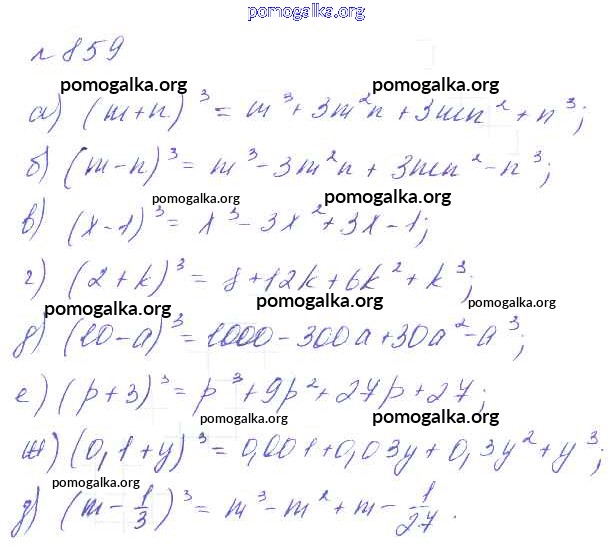 pomogalka.org
№ 859
pomogalka.org pomogalka.org
а) (m+n)³ = m³ + 3m²n + 3mn² + n³;
б) (m-n)³ = m³ - 3m²n + 3mn² - n³;
pomogalka.org pomogalka.org
в) (x-1)³ = x³ - 3x² + 3x - 1;
г) (2+k)³ = 8 + 12k + 6k² + k³;
pomogalka.org pomogalka.org pomogalka.org
д) (10-a)³ = 1000 - 300a + 30a² - a³;
е) (p+3)³ = p³ + 9p² + 27p + 27;
pomogalka.org pomogalka.org
ж) (0,1+y)³ = 0,001 + 0,03y + 0,3y² + y³;
pomogalka.org pomogalka.org
з) (m - 1/3)³ = m³ - m² + m - 1/27.